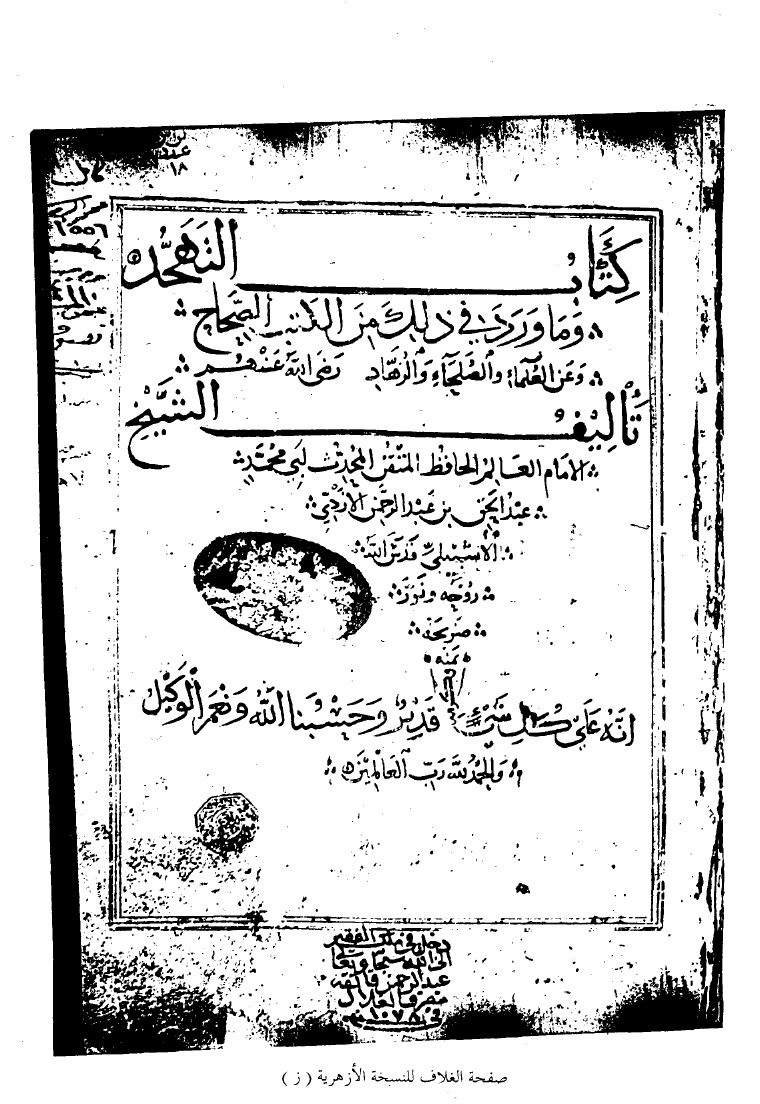 عدد
١٨
كتاب التهجد
وما ورد في ذلك من الكتب الصحاح
وعن العلماء والصلحاء والزهاد رضي الله عنهم
تأليف الشيخ
الامام العالم الحافظ المتقن المحدث ابي محمد
عبد الحق بن عبد الرحمن الازدي
الاشبيلي قدس الله
روحه ونور
ضريحه
بمنه
انه على كل شيء قدير وحسبنا الله ونعم الوكيل
والحمد لله رب العالمين
دخل في ملك الفقير
الى الله سبحانه وتعا
عبد الرحمن
في ١٠٧٨
صفحة الغلاف للنسخة الأزهرية ( ز )